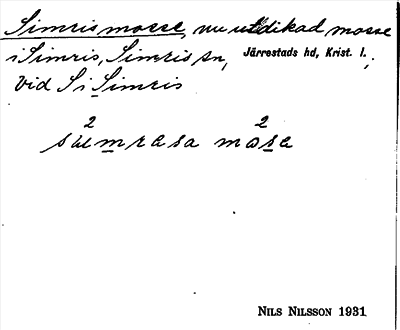 Simrismosse, nu utdikad mosse
i Simris, Simris sn, Järrestads hd, Krist. l.,
vid S i Simris
2 2
mosa
NILS NILSSON 1931